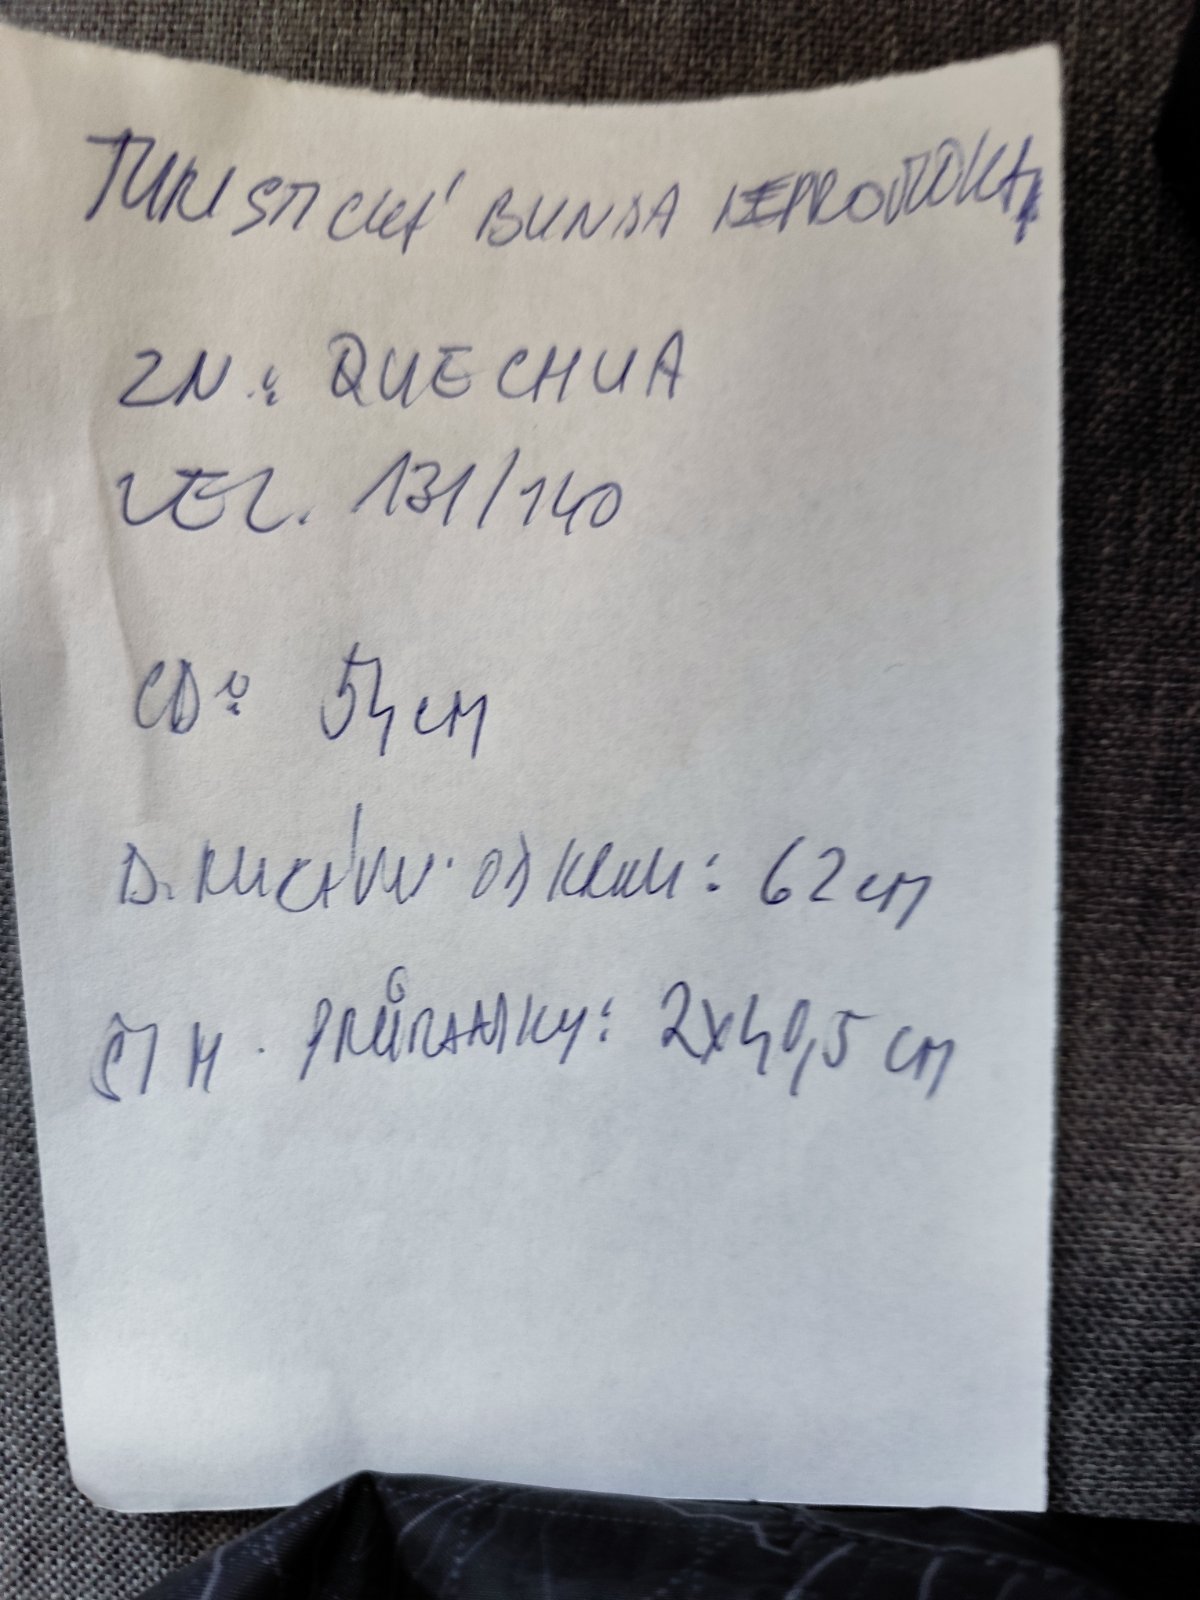 TURISTICKÁ BUNDA NEPROMOKA,
ZN.: QUECHUA
VEL. 131/140
CD: 54 cm
D. RUKÁVU OD KRKU: 62 cm
ŠÍŘ. PRŮRAMKY: 2x40,5 cm